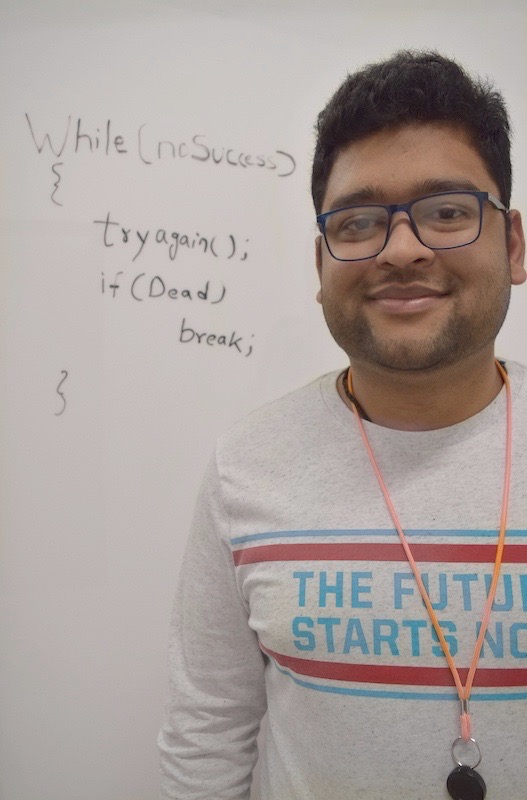 While(noSuccess)
{
tryagain();
if(Dead)
break;
}
THE FUTU
STARTS NO